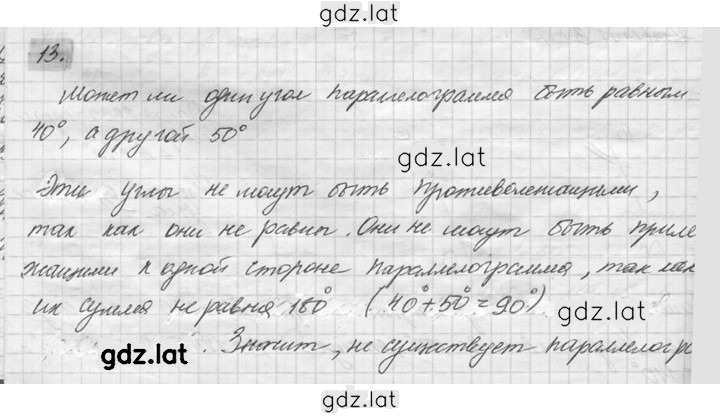 gdz.lat
13.
Может ли один угол параллелограмма быть равным
40°, а другой 50°
gdz.lat
Эти углы не могут быть противолежащими,
так как они не равны. Они не могут быть приле
жащими к одной стороне параллелограмма, так как
их сумма не равна 180° (40°+50°=90°)
gdz.lat
gdz.lat
. Значит, не существует параллелогр
gdz.lat